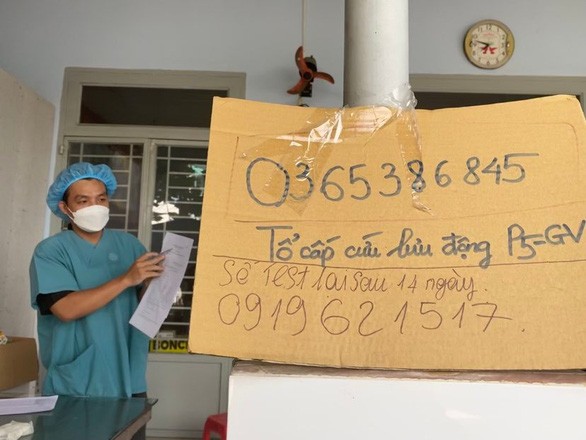 0365386845
Tổ cấp cứu lưu động P5-GV
Số Test lại sau 14 ngày.
0919621517.
BONCH